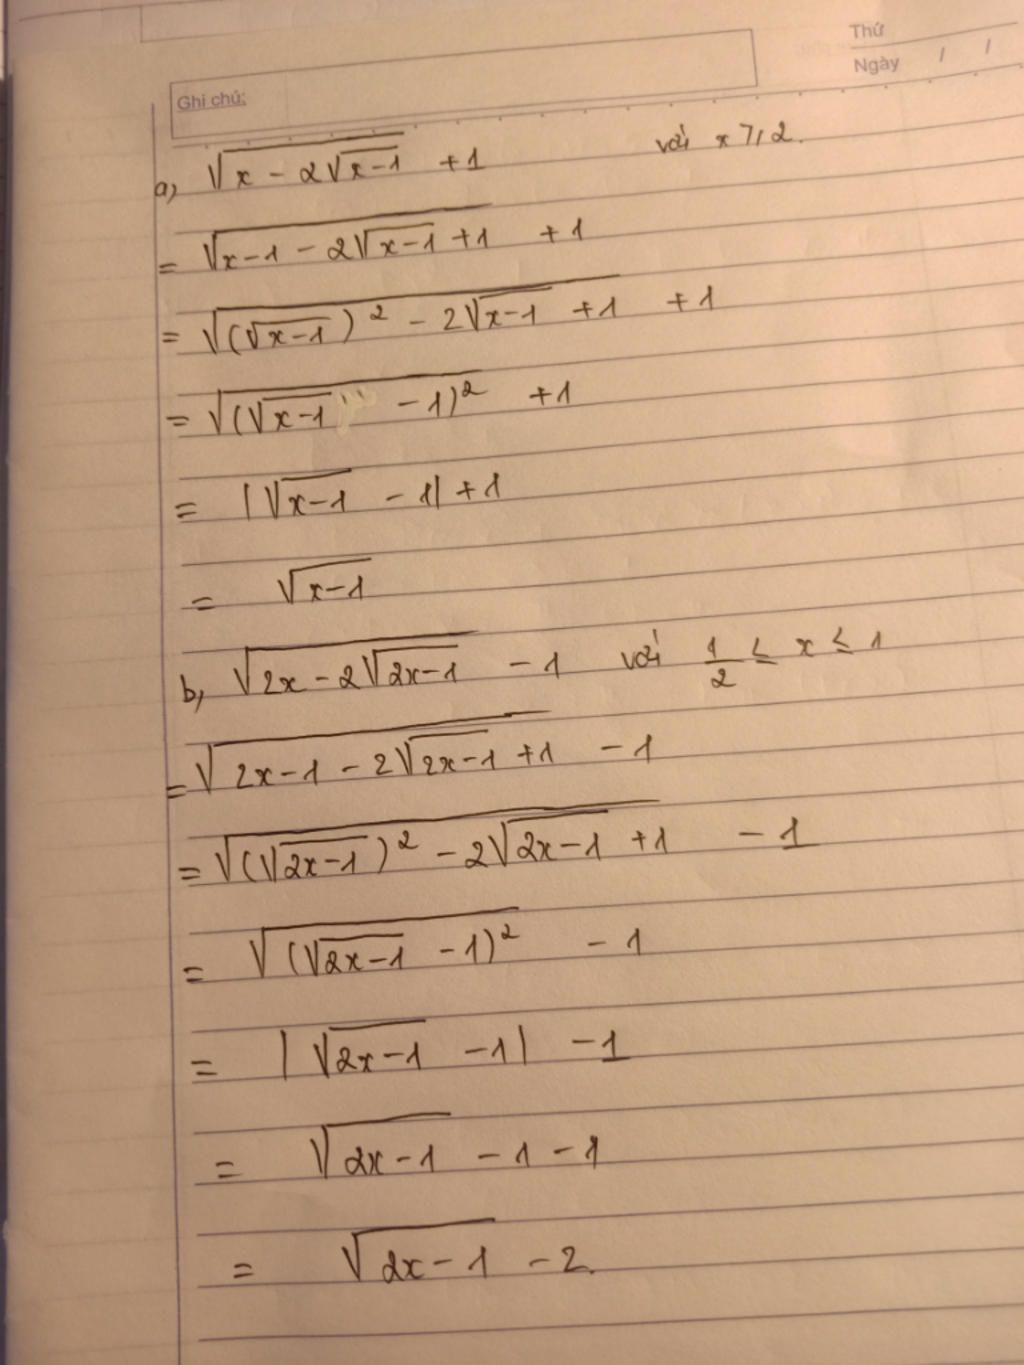 Thứ
Ngày / /
Ghi chú:
a, √(x − 2√(x−1)) + 1 với x ⩾ 2.
= √(x−1 − 2√(x−1) + 1) + 1
= √((√(x−1))² − 2√(x−1) + 1) + 1
= √((√(x−1) − 1)²) + 1
= |√(x−1) − 1| + 1
= √(x−1)
b, √(2x − 2√(2x−1)) − 1 với 1/2 ≤ x ≤ 1
= √(2x−1 − 2√(2x−1) + 1) − 1
= √((√(2x−1))² − 2√(2x−1) + 1) − 1
= √((√(2x−1) − 1)²) − 1
= |√(2x−1) − 1| − 1
= √(2x−1) − 1 − 1
= √(2x−1) − 2.